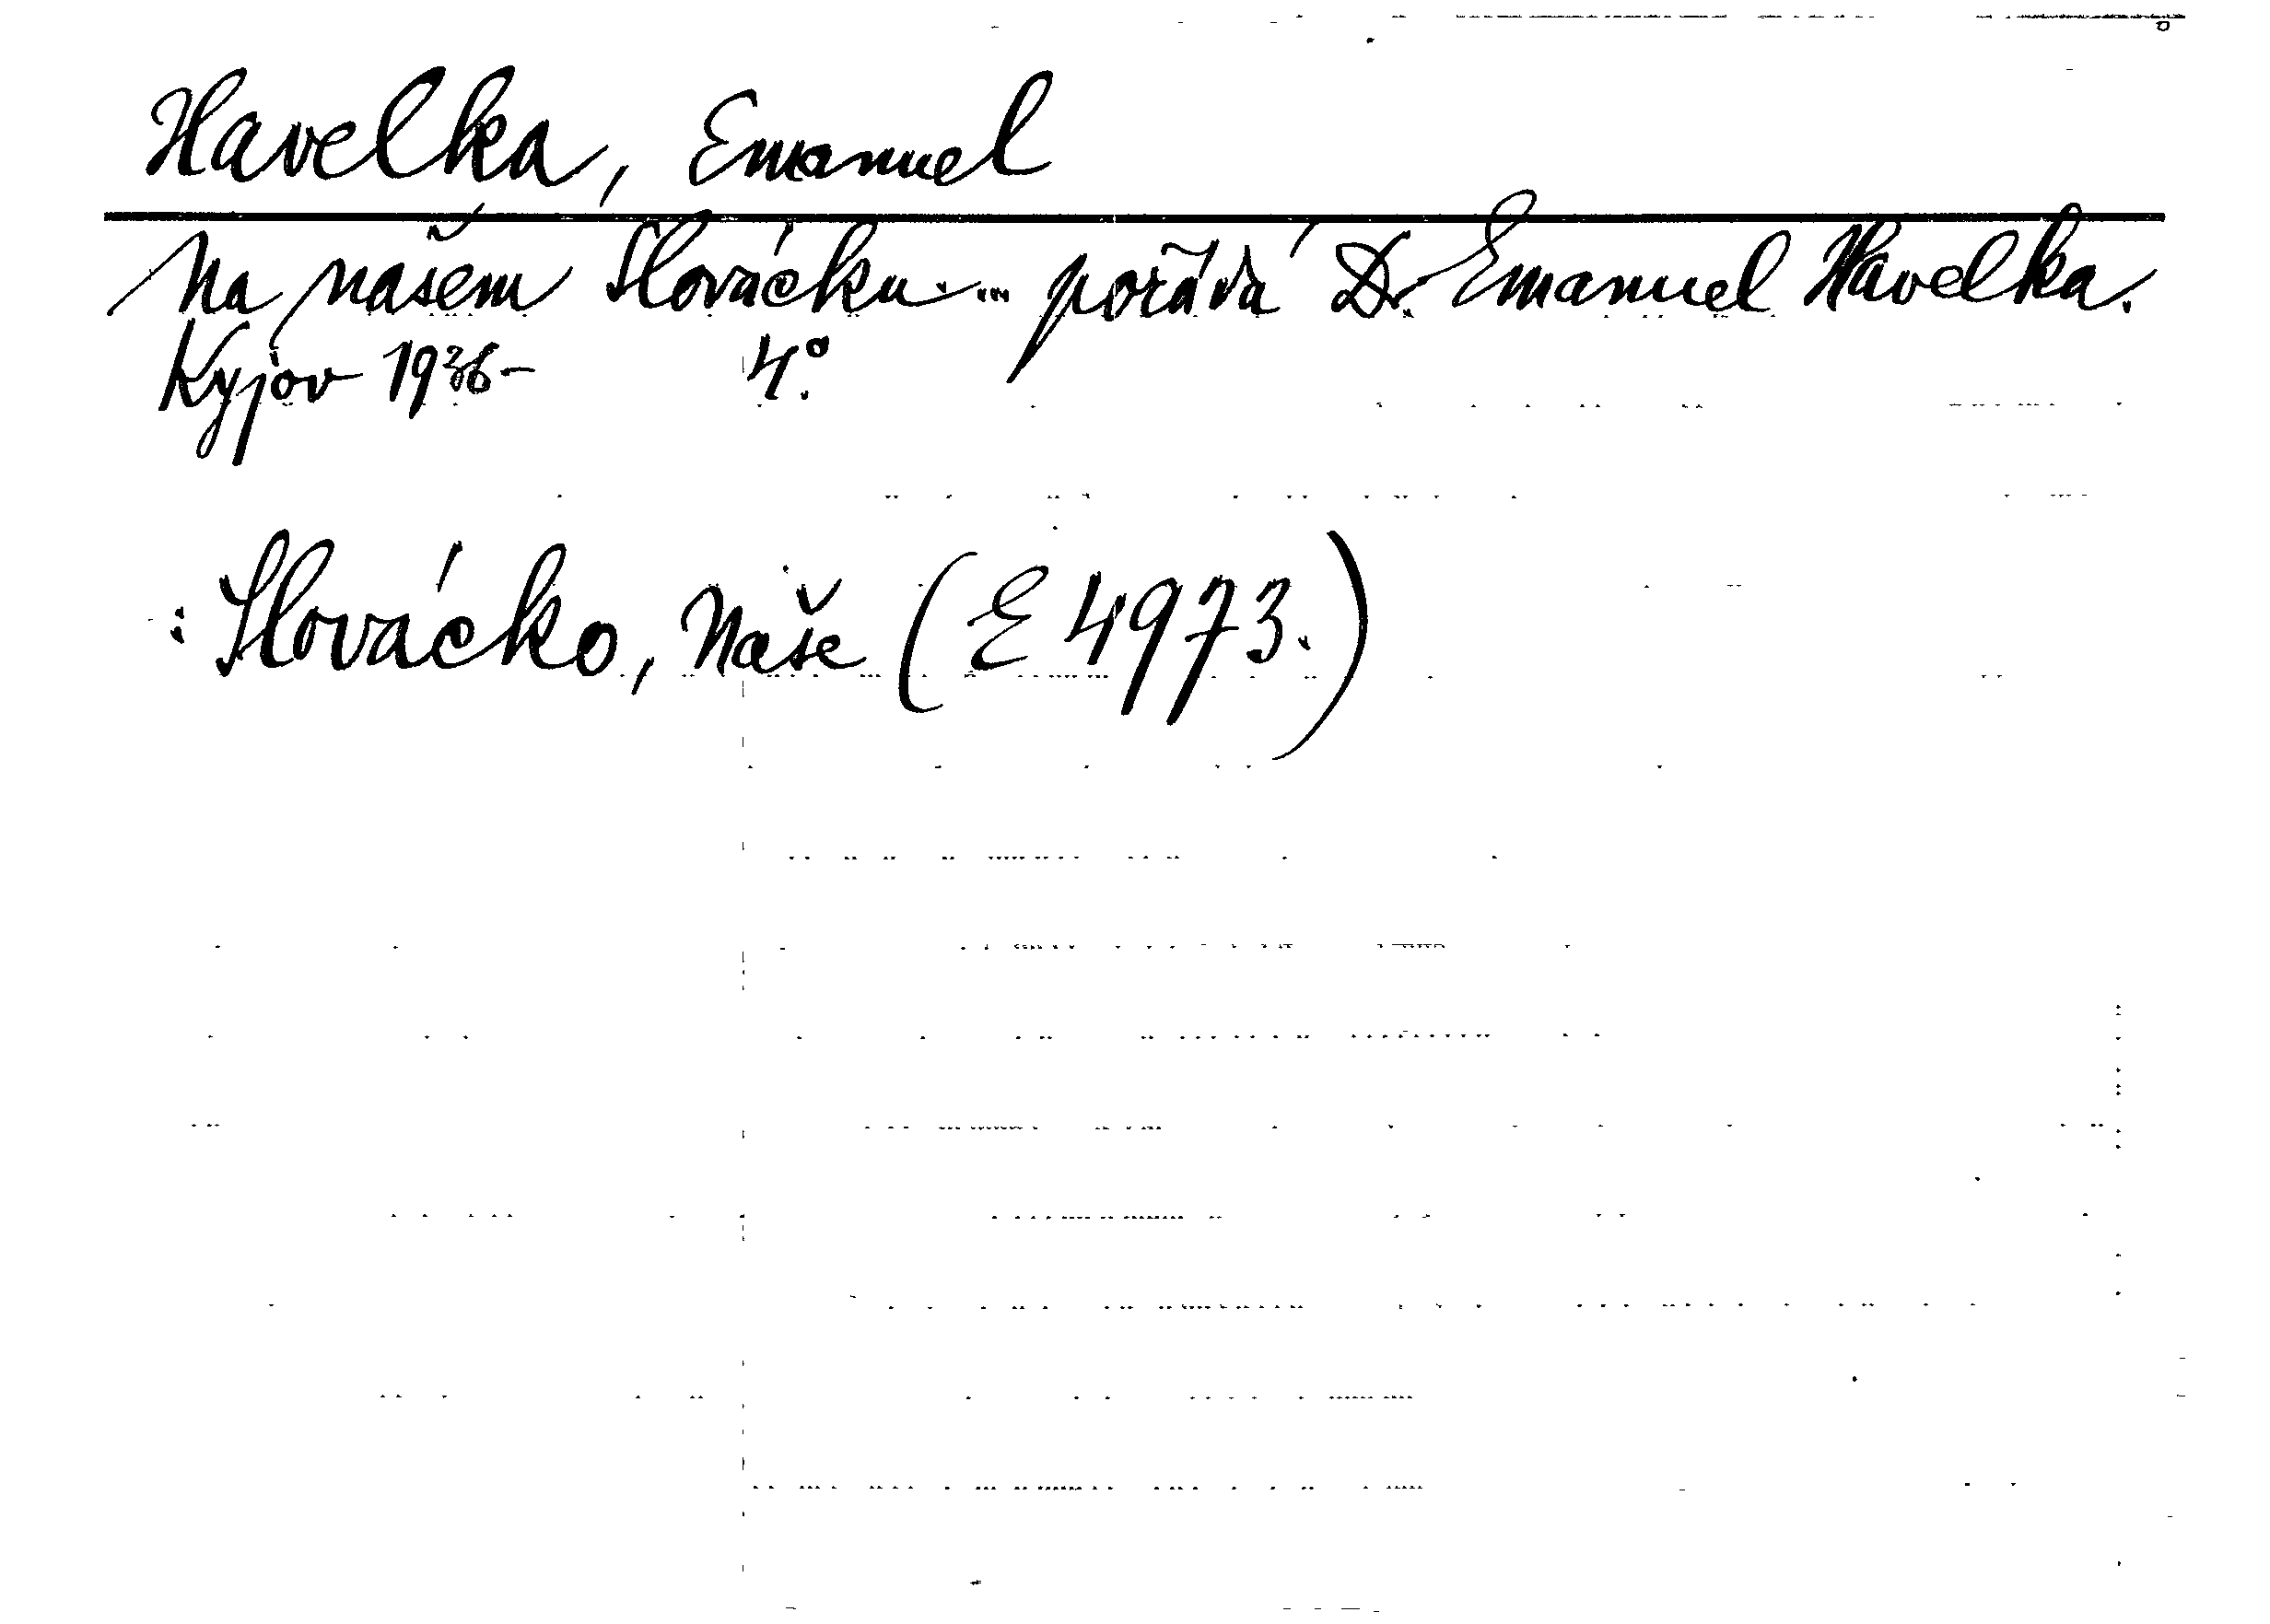 Havelka, Emanuel
Na našem Slovácku.... pořádá Dr. Emanuel Havelka.
Kyjov 1936- 4°.
: Slovácko, Naše (E 4973.)